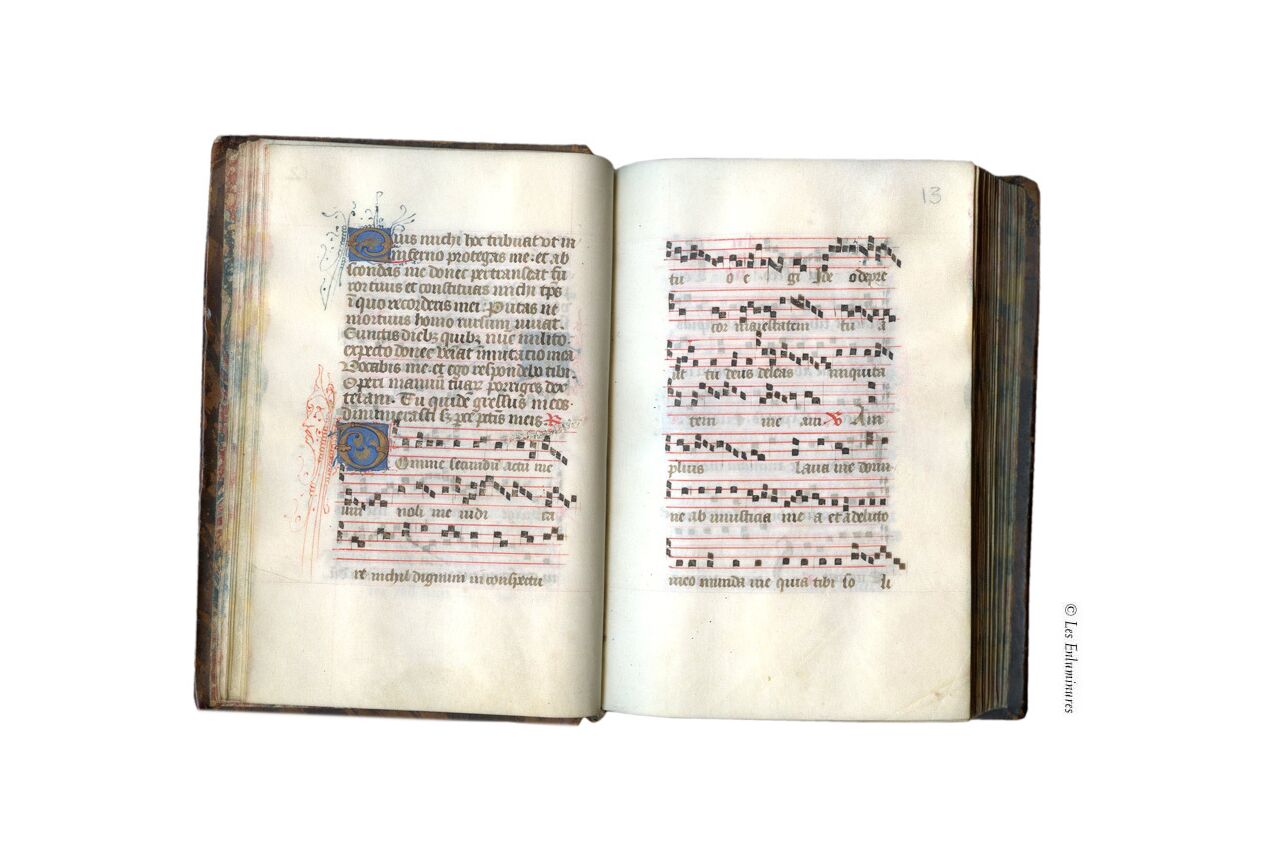 Quis michi hoc tribuat vt in
inferno protegas me. et ab
scondas me donec pertranseat fu
ror tuus et constituas michi tps
i quo recorderis mei. Putas ne
mortuus homo rursum viuat.
Cunctis dieb quib nuc milito
expecto donec veiat imutatio mea
Vocabis me. et ego respondebo tibi
Operi manuu tuar porriges dex
teram. Tu quide gressus meos
dinumerasti s parce pctis meis. R
Domine secundu actu me
um noli me iudi ca
re nichil dignum in conspectu
13
tu o e gi Ide o depre
cor maiestatem tu a
tu deus deleas iniquita
tem me am V Am
plius laua me domi
ne ab iniusticia me a et a delicto
meo munda me quia tibi so li
© Les Enluminures